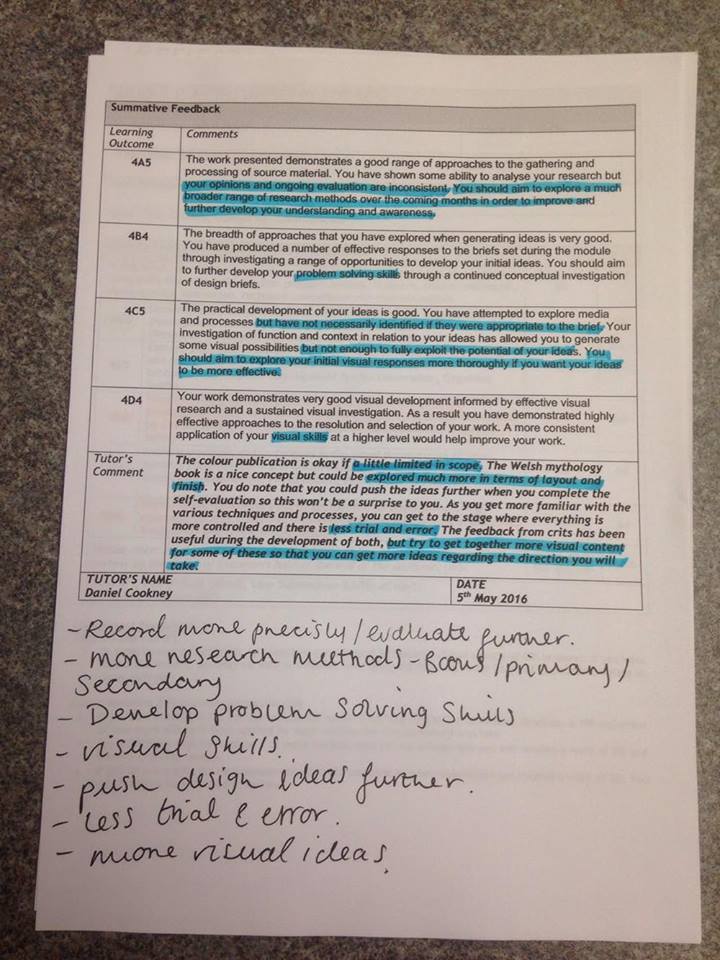 Summative Feedback
Learning
Outcome
Comments
4A5
The work presented demonstrates a good range of approaches to the gathering and
processing of source material. You have shown some ability to analyse your research but
your opinions and ongoing evaluation are inconsistent. You should aim to explore a much
broader range of research methods over the coming months in order to improve and
further develop your understanding and awareness.
4B4
The breadth of approaches that you have explored when generating ideas is very good.
You have produced a number of effective responses to the briefs set during the module
through investigating a range of opportunities to develop your initial ideas. You should aim
to further develop your problem solving skills through a continued conceptual investigation
of design briefs.
4C5
The practical development of your ideas is good. You have attempted to explore media
and processes but have not necessarily identified if they were appropriate to the brief. Your
investigation of function and context in relation to your ideas has allowed you to generate
some visual possibilities but not enough to fully exploit the potential of your ideas. You
should aim to explore your initial visual responses more thoroughly if you want your ideas
to be more effective.
4D4
Your work demonstrates very good visual development informed by effective visual
research and a sustained visual investigation. As a result you have demonstrated highly
effective approaches to the resolution and selection of your work. A more consistent
application of your visual skills at a higher level would help improve your work.
Tutor's
Comment
The colour publication is okay if a little limited in scope. The Welsh mythology
book is a nice concept but could be explored much more in terms of layout and
finish. You do note that you could push the ideas further when you complete the
self-evaluation so this won't be a surprise to you. As you get more familiar with the
various techniques and processes, you can get to the stage where everything is
more controlled and there is less trial and error. The feedback from crits has been
useful during the development of both, but try to get together more visual content
for some of these so that you can get more ideas regarding the direction you will
take.
TUTOR'S NAME
Daniel Cookney
DATE
5th May 2016
- Record more precisly/evaluate further.
- more research methods - Books/primary/
Secondary
- Develop problem Solving Skills
- visual skills.
- push design ideas further.
- less trial & error.
- more visual ideas.